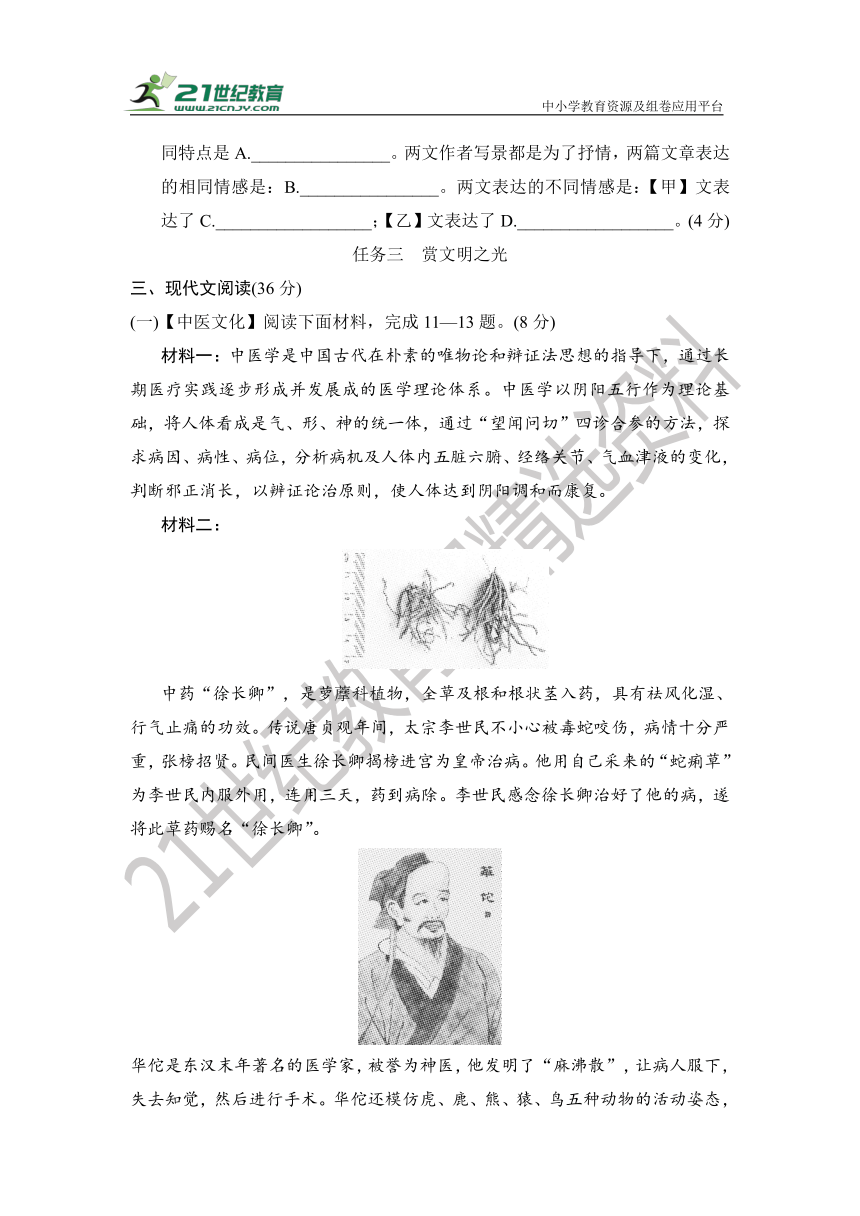 21世纪教育
WWW.21CNJY.COM
中小学教育资源及组卷应用平台
同特点是A.________________。两文作者写景都是为了抒情,两篇文章表达
的相同情感是:B.________________。两文表达的不同情感是:【甲】文表
达了C.__________________;【乙】文表达了D.__________________。(4分)
任务三 赏文明之光
三、现代文阅读(36分)
(一)【中医文化】阅读下面材料,完成11—13题。(8分)
材料一:中医学是中国古代在朴素的唯物论和辩证法思想的指导下,通过长
期医疗实践逐步形成并发展成的医学理论体系。中医学以阴阳五行作为理论基
础,将人体看成是气、形、神的统一体,通过“望闻问切”四诊合参的方法,探
求病因、病性、病位,分析病机及人体内五脏六腑、经络关节、气血津液的变化,
判断邪正消长,以辨证论治原则,使人体达到阴阳调和而康复。
材料二:
中药“徐长卿”,是萝藦科植物,全草及根和根状茎入药,具有祛风化湿、
行气止痛的功效。传说唐贞观年间,太宗李世民不小心被毒蛇咬伤,病情十分严
重,张榜招贤。民间医生徐长卿揭榜进宫为皇帝治病。他用自己采来的“蛇痢草”
为李世民内服外用,连用三天,药到病除。李世民感念徐长卿治好了他的病,遂
将此草药赐名“徐长卿”。
華佗
华佗是东汉末年著名的医学家,被誉为神医,他发明了“麻沸散”,让病人服下,
失去知觉,然后进行手术。华佗还模仿虎、鹿、熊、猿、鸟五种动物的活动姿态,
21世纪教育网精选资料